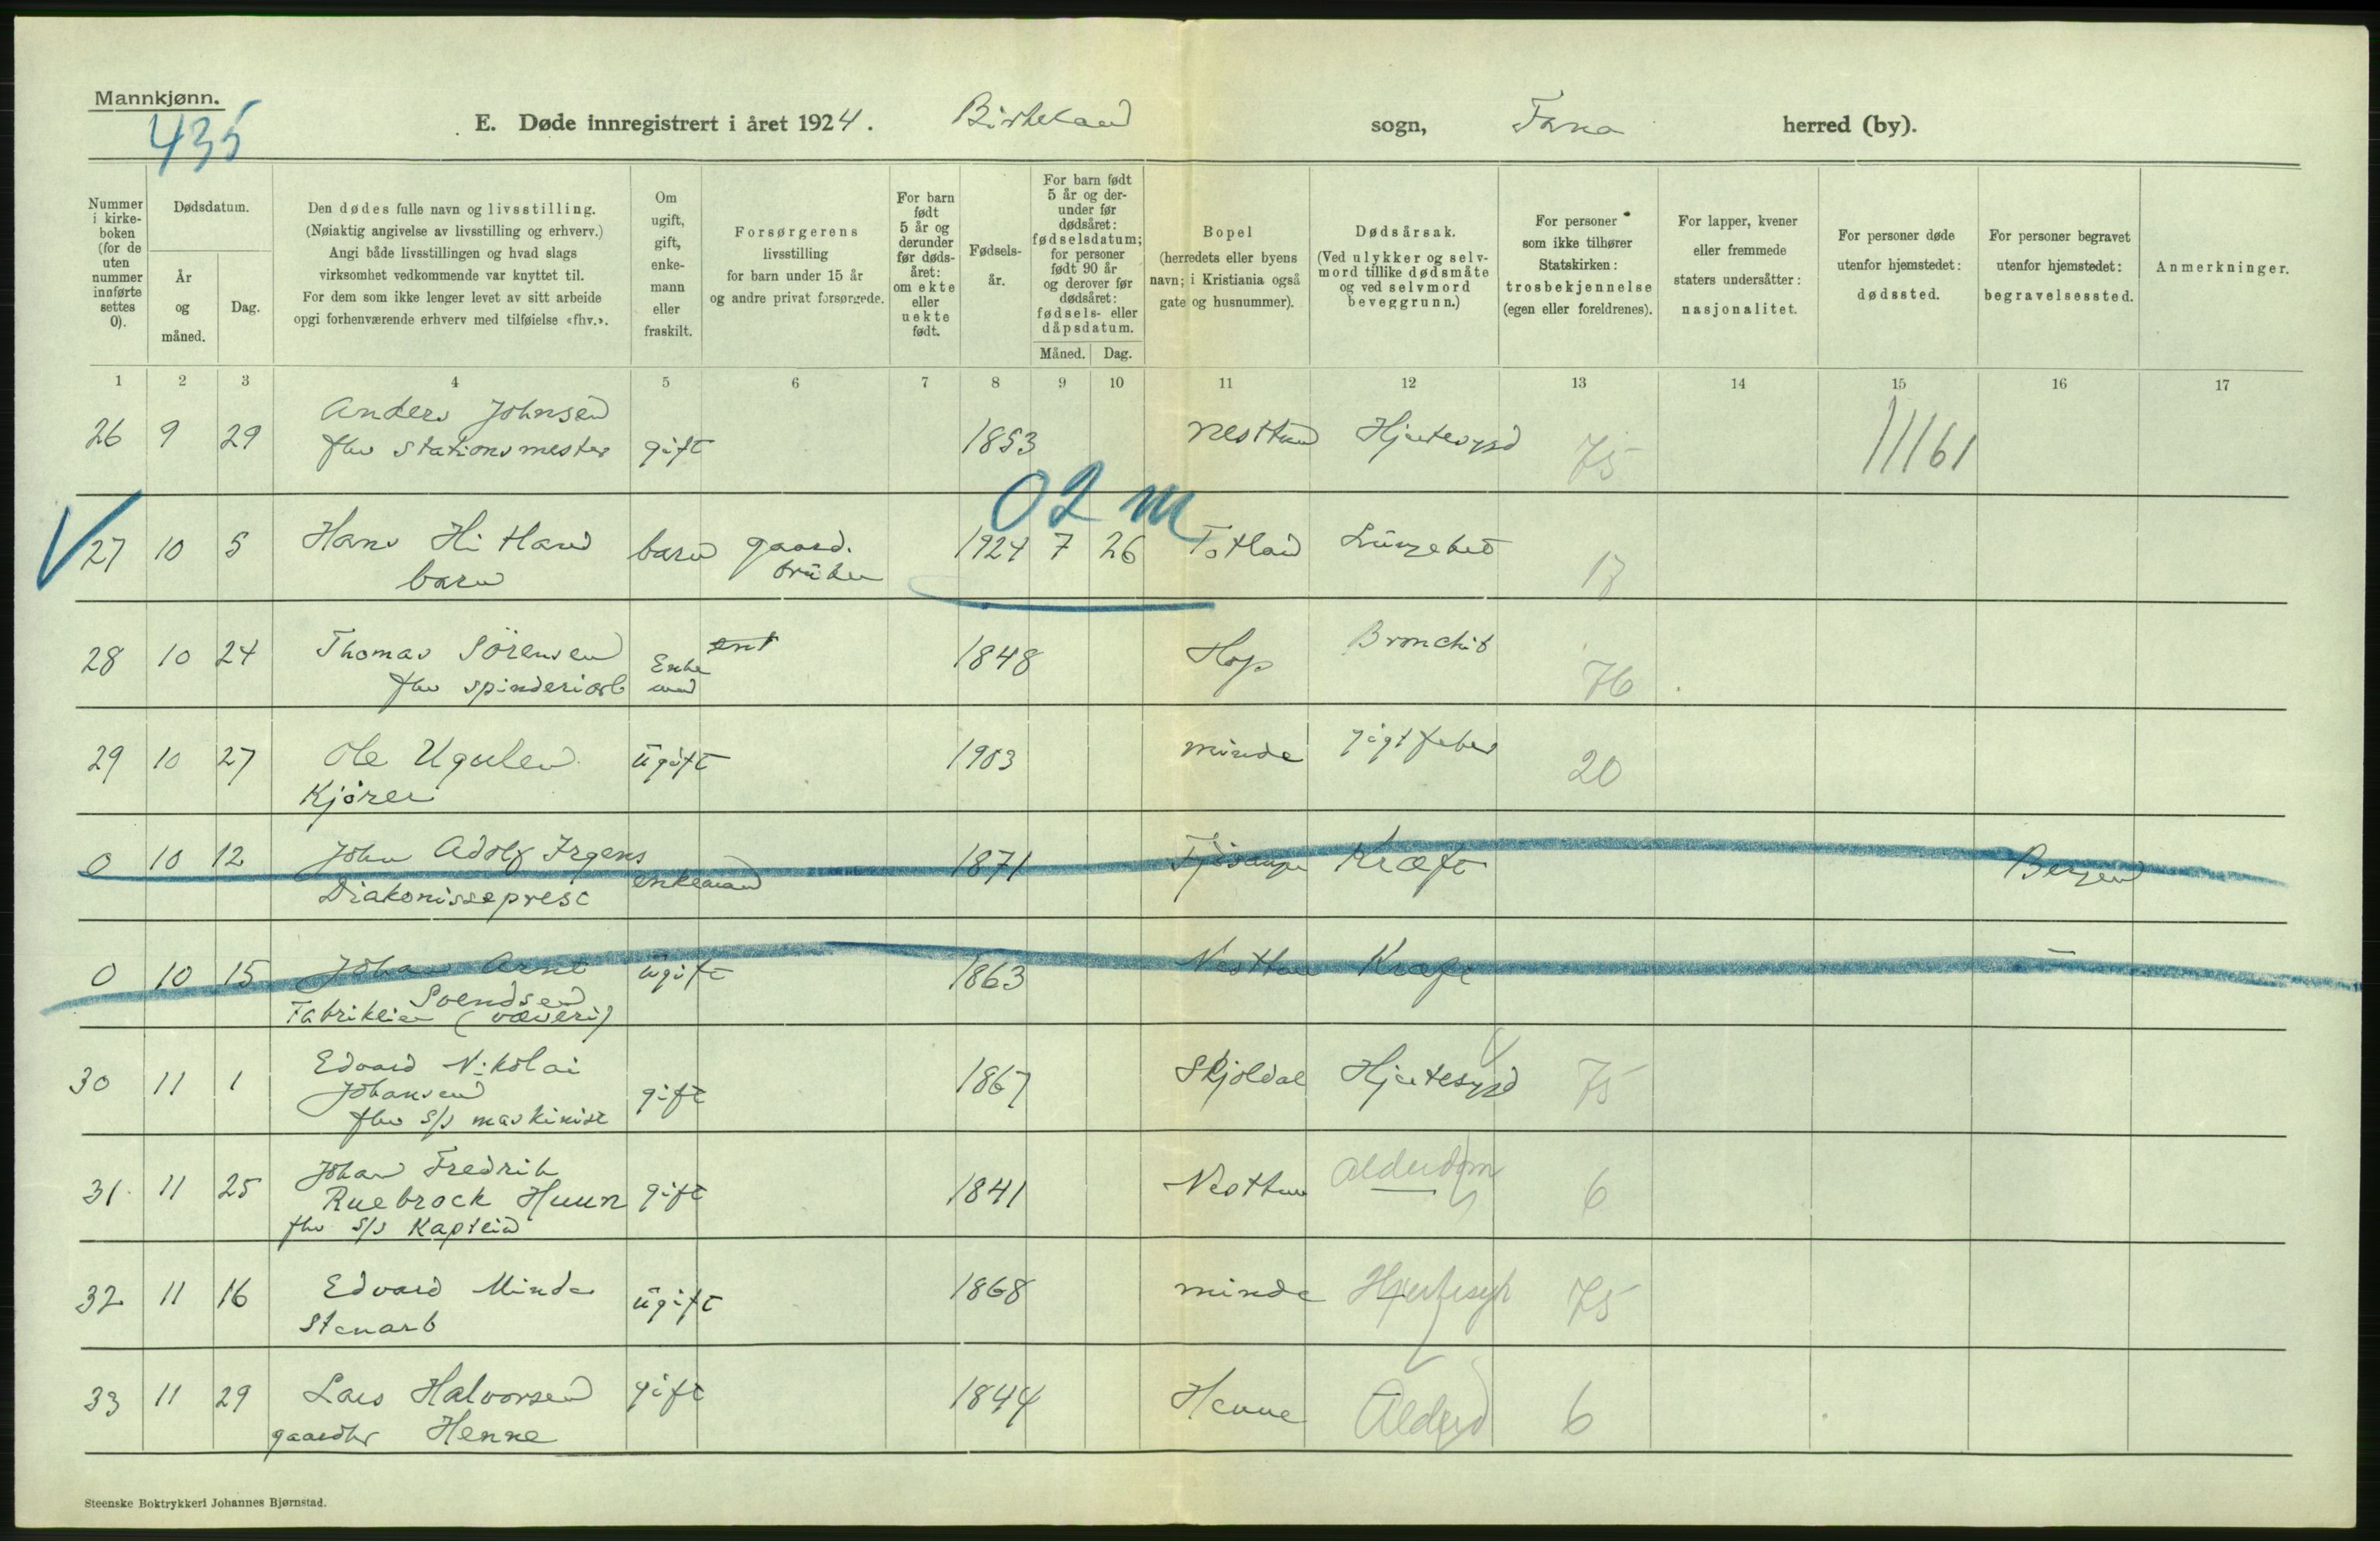 Mannkjønn.
435
E. Døde innregistrert i året 1924. Birkeland sogn, Fana herred (by).
Nummer i kirke-boken (for de uten nummer innførte settes 0).
Dødsdatum.
År og måned.
Dag.
Den dødes fulle navn og livsstilling.
(Nøiaktig angivelse av livsstilling og erhverv.)
Angi både livsstillingen og hvad slags
virksomhet vedkommende var knyttet til.
For dem som ikke lenger levet av sitt arbeide
opgi forhenværende erhverv med tilføielse «fhv.».
Om ugift, gift, enke-mann eller fraskilt.
Forsørgerens
livsstilling
for barn under 15 år
og andre privat forsørgede.
For barn født 5 år og derunder før døds-året: om ekte eller uekte født.
Fødsels-år.
For barn født 5 år og der-under før dødsåret: fødselsdatum; for personer født 90 år og derover før dødsåret: fødsels- eller dåpsdatum.
Måned. Dag.
Bopel
(herredets eller byens
navn; i Kristiania også
gate og husnummer).
Dødsårsak.
(Ved ulykker og selv-
mord tillike dødsmåte
og ved selvmord
beveggrunn.)
For personer
som ikke tilhører
Statskirken:
trosbekjennelse
(egen eller foreldrenes).
For lapper, kvener
eller fremmede
staters undersåtter:
nasjonalitet.
For personer døde
utenfor hjemstedet:
dødssted.
For personer begravet
utenfor hjemstedet:
begravelsessted.
Anmerkninger.
1 2 3 4 5 6 7 8 9 10 11 12 13 14 15 16 17
Anders Johnsen
26 9 29 fhv Stationsmester gift 1853 Nesttun Hjertesygd 75 11161
02 m
27 10 5 Hans Hitland barn gaard. 1924 7 26 Totland Lungebet 17
barn bruker
28 10 24 Thomas Sörensen Enke 1848 Hop Bronchit 76
fhv spinderiarb mand
29 10 27 Ole Ugulen ugift 1903 Minde gigtfeber 20
Kjörer
0 10 12 John Adolf Irgens enkemand 1871 Kræft Bergen
Diakonisseprest
0 10 15 Johan Arne ugift 1863 Nesttun Kræft —
Svendsen
Fabrikeier (væveri)
Edvard Nikolai
30 11 1 Johansen gift 1867 Skjoldal Hjertesygd 75
fhv S/S maskinist
Johan Fredrik
31 11 25 Ruebrock Huun gift 1841 Nesttun Alderdom 6
fhv S/S Kaptein
32 11 16 Edvard Minde ugift 1868 Minde Hjertesyk 75
Stenarb
33 11 29 Lars Halvorsen gift 1844 Henne Alderd 6
gaardbr Henne
Steenske Boktrykkeri Johannes Bjørnstad.